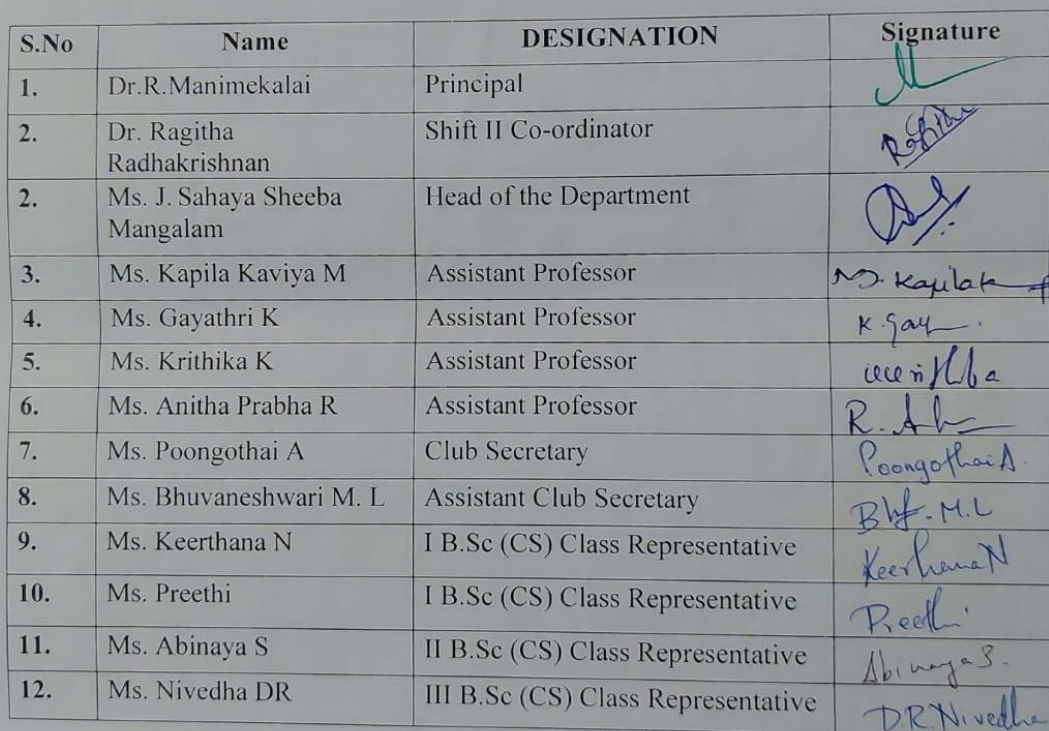 S.No Name DESIGNATION Signature
1. Dr.R.Manimekalai Principal
2. Dr. Ragitha Shift II Co-ordinator
Radhakrishnan
2. Ms. J. Sahaya Sheeba Head of the Department
Mangalam
3. Ms. Kapila Kaviya M Assistant Professor
4. Ms. Gayathri K Assistant Professor K. Gay
5. Ms. Krithika K Assistant Professor
6. Ms. Anitha Prabha R Assistant Professor
7. Ms. Poongothai A Club Secretary Poongothai A.
8. Ms. Bhuvaneshwari M. L Assistant Club Secretary M.L
9. Ms. Keerthana N I B.Sc (CS) Class Representative Keerthana N
10. Ms. Preethi I B.Sc (CS) Class Representative Preethi
11. Ms. Abinaya S II B.Sc (CS) Class Representative Abinaya S.
12. Ms. Nivedha DR III B.Sc (CS) Class Representative D.R.Nivedha